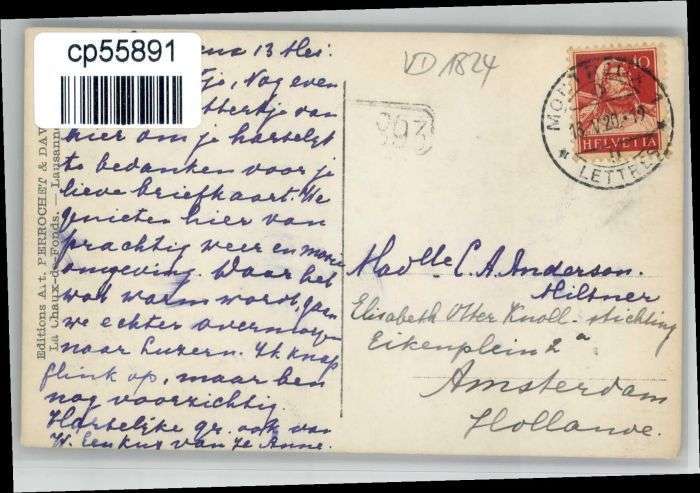 cp55891
13 Mei.
Nog even
van
hier om je hartelijk
te bedanken voor je
lieve briefkaart. We
genieten hier van
prachtig weer en mooie
omgeving. Daar het
wat warm wordt, gaan
we echter overmorgen
naar Luzern. Ik knap
flink op, maar ben
nog voorzichtig.
Hartelijke gr. ook van
W. Een kus van Je Anne.
Editions Art. PERROCHET & DAV
La Chaux-de-Fonds. — Lausanne
VD 1824
10
HELVETIA
LETTRES
Madlle C. A. Anderson.
Miltner
Elisabeth Otter Knoll-stichting
Eikenplein 2a
Amsterdam
Hollande.